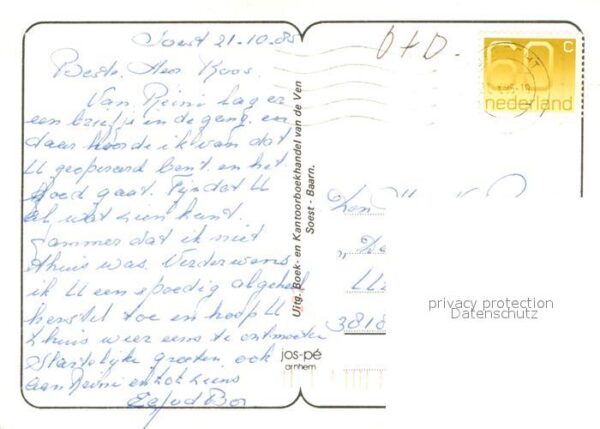 Soest 21-10-85
Beste Heer Koos.
Van Reini lag er
een briefje in de gang en
daar hoorde ik van dat
U geopereerd bent. en het
goed gaat. Fijn dat U
al wat zien kunt.
Jammer dat ik niet
thuis was. Verder wens
ik U een spoedig algeheel
herstel toe en hoop U
thuis weer eens te ontmoeten
Hartelijke groeten ook
aan Reini en tot ziens
Bos
Uitg. Boek- en Kantoorboekhandel van de Ven
Soest - Baarn.
jos-pé
arnhem
60 c
nederland
3818
privacy protection
Datenschutz